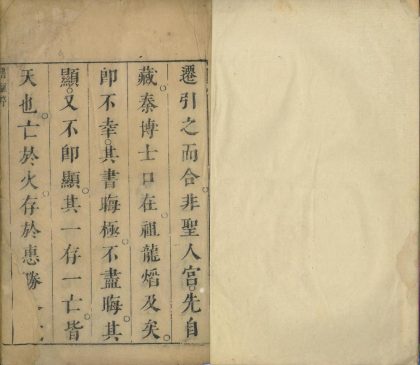 遷引之而合非聖人官先自
藏秦博士口在祖龍燔及矣
卽不幸其書晦極不盡晦其
顯又不卽顯其一存一亡皆
天也亡於火存於惠隊